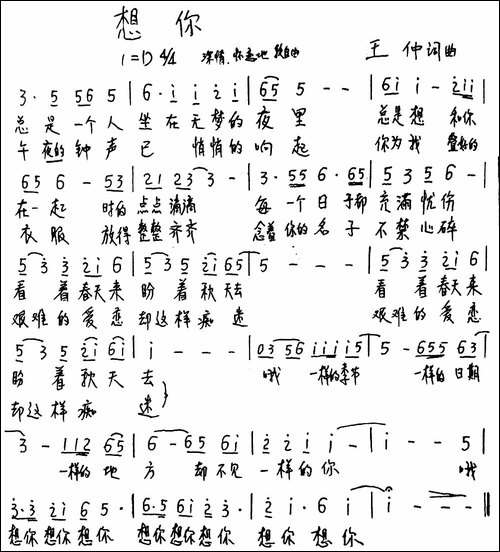 想 你
1=D 4/4 深情、怀恋地 王 仲词曲
3· 5 56 5 | 6· i i 2 i | 65 5 - - | 6i i - 2ii |
总 是 一个 人 坐 在 无 梦 的 夜 里 总是 想 和你
午 夜的 钟 声 已 悄悄 的 响 起 你为 我 叠好的
65 6 - 53 | 21 23 3 - | 3· 55 6· 65 | 5 3 5 6 - |
在一 起 时的 点点 滴滴 每 一个 日 子都 充 满 忧 伤
衣 服 放得 整整 齐齐 念着 你的 名 子 不 禁 心 碎
5 3 3 2i 6 | 5 3 5 2i 65 | 5 - - - | 5 3 3 2i 6 |
看 着 春天 来 盼 着 秋 天去 看 着 春天 来
艰难 的 爱 恋 却这 样 痴 迷 艰难 的 爱 恋
5 3 5 2i 6i | i - - - | 03 56 iiii5 | 5 - 655 63 |
盼 着 秋 天 去 哦 一样的季节 一样的 日期
却这 样 痴 迷
3 - 112 65 | 6 - 65 6i | 2 2i i - | i - - 5 |
一样的 地 方 却 不见 一 样的 你 哦
3·3 2i 6 5 · | 6·5 6i 2 3 · | 2 i · 6 i | i - - - ‖
想你 想你 想你 想你 想你 想你 想 你 想 你